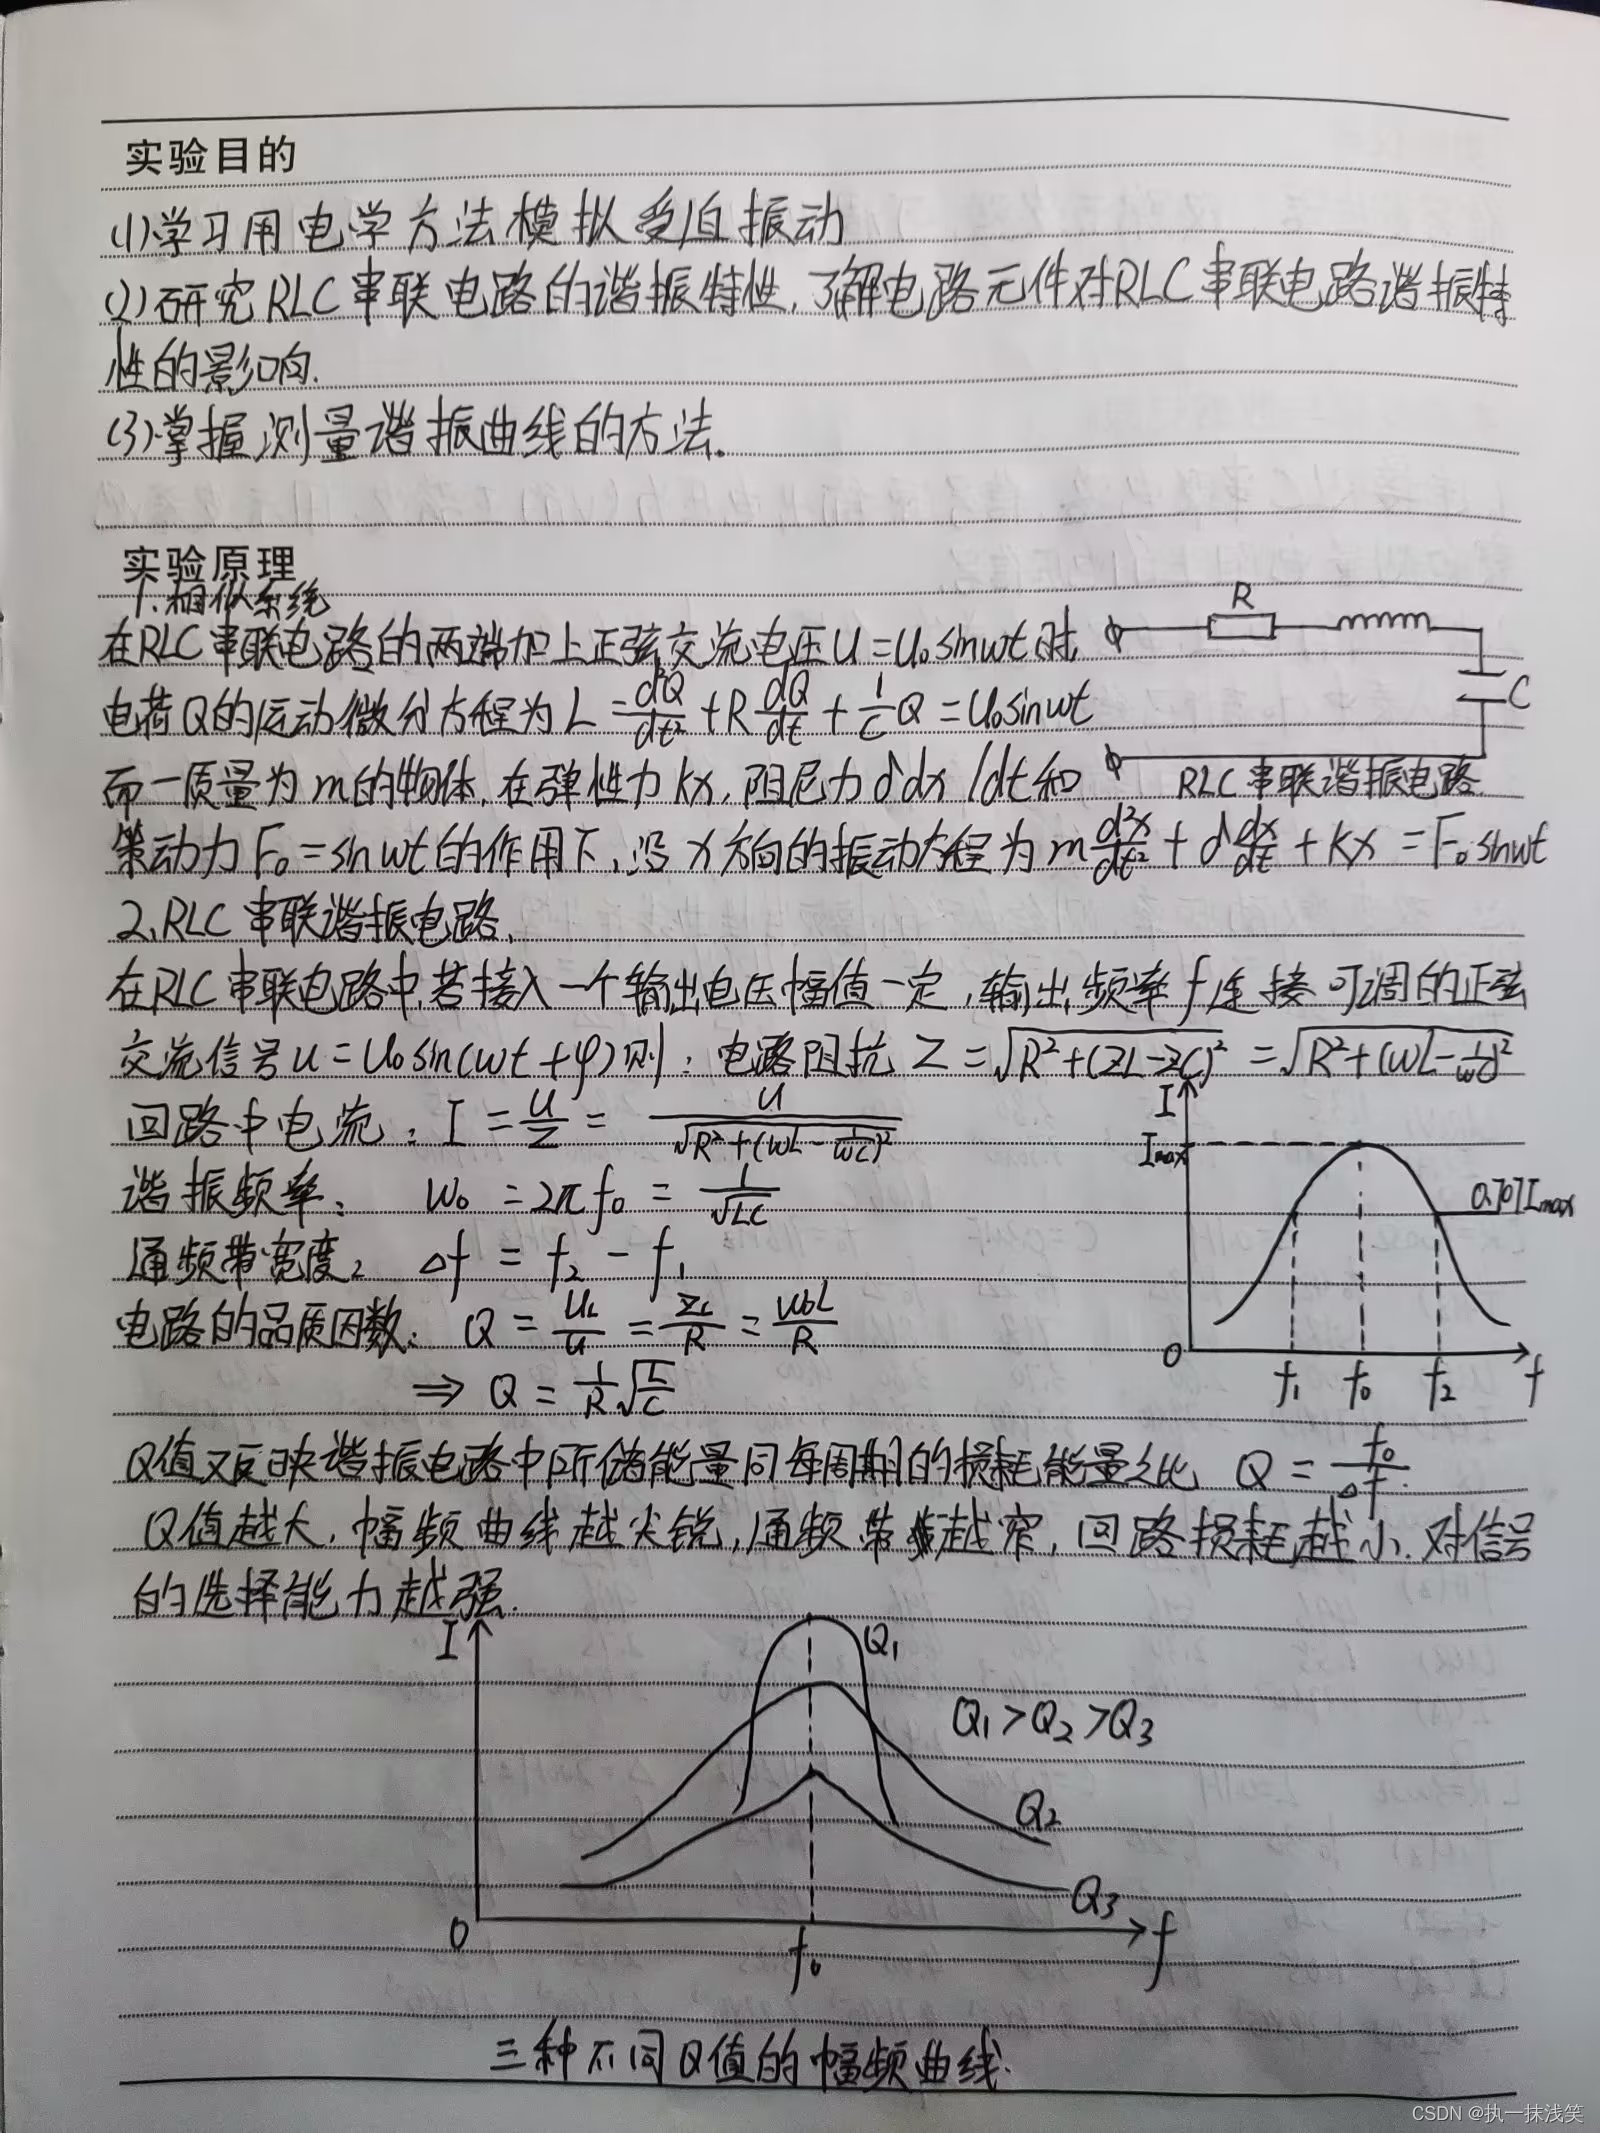 实验目的
(1)学习用电学方法模拟受迫振动
(2)研究RLC串联电路的谐振特性,了解电路元件对RLC串联电路谐振特
性的影响.
(3)掌握测量谐振曲线的方法.
实验原理
1.相似系统
在RLC串联电路的两端加上正弦交流电压U=U₀sinwt时,
电荷Q的运动微分方程为L=d²Q/dt²+R dQ/dt+1/C Q=U₀sinwt
而一质量为m的物体,在弹性力kx,阻尼力δdx/dt和
策动力F₀=sinwt的作用下,沿x方向的振动方程为m d²x/dt²+δ dx/dt+kx=F₀sinwt
R
C
RLC串联谐振电路
2.RLC串联谐振电路.
在RLC串联电路中,若接入一个输出电压幅值一定,输出频率f连接可调的正弦
交流信号u=U₀sin(wt+φ)则:电路阻抗Z=√(R²+(ZL-ZC)²)=√(R²+(wL-1/wC)²)
回路中电流:I=U/Z=U/√(R²+(wL-1/wC)²)
谐振频率: w₀=2πf₀=1/√LC
通频带宽度: △f=f₂-f₁
电路的品质因数: Q=U_L/U=Z_L/R=w₀L/R
⇒Q=1/R √(L/C)
I
I max
0.707Imax
0 f₁ f₀ f₂ f
Q值又反映谐振电路中所储能量同每周期的损耗能量之比 Q=f₀/△f
Q值越大,幅频曲线越尖锐,通频带越窄,回路损耗越小.对信号
的选择能力越强.
I
Q₁
Q₁>Q₂>Q₃
Q₂
Q₃
0 f₀ f
三种不同Q值的幅频曲线.
CSDN @执一抹浅笑